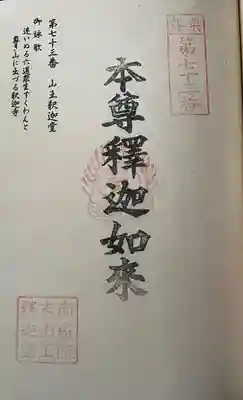 第七十三番
本尊釋迦如來
第七十三番 山主釈迦堂
御詠歌
迷いぬる六道衆生すくわんと
尊き山に出づる釈迦寺